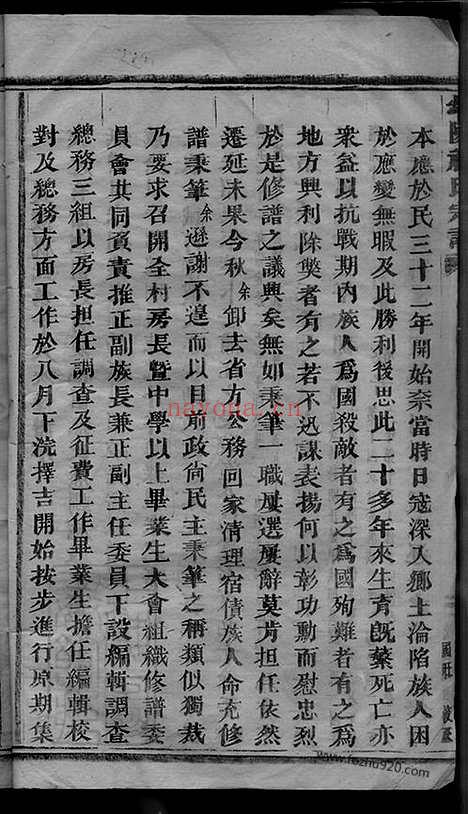 本應於民三十二年開始奈當時日寇深入鄉土淪陷族人困
於應變無暇及此勝利後思此二十多年來生育既蘩死亡亦
衆益以抗戰期內族人爲國殺敵者有之爲國殉難者有之爲
地方興利除獘者有之若不迅謀表揚何以彰功勳而慰忠烈
於是修譜之議興矣無如秉筆一職屢選屢辭莫肯担任依然
遷延未果今秋余卸去省方公務回家清理宿債族人命充修
譜秉筆余遜謝不遑而以目前政尙民主秉筆之稱類似獨裁
乃要求召開全村房長曁中學以上畢業生大會組織修譜委
員會共同負責推正副族長兼正副主任委員下設編輯調查
總務三組以房長担任調查及征費工作畢業生擔任編輯校
對及總務方面工作於八月下浣擇吉開始按步進行原期集
氏宗譜
國社
navona.cn
www.fozhu920.com